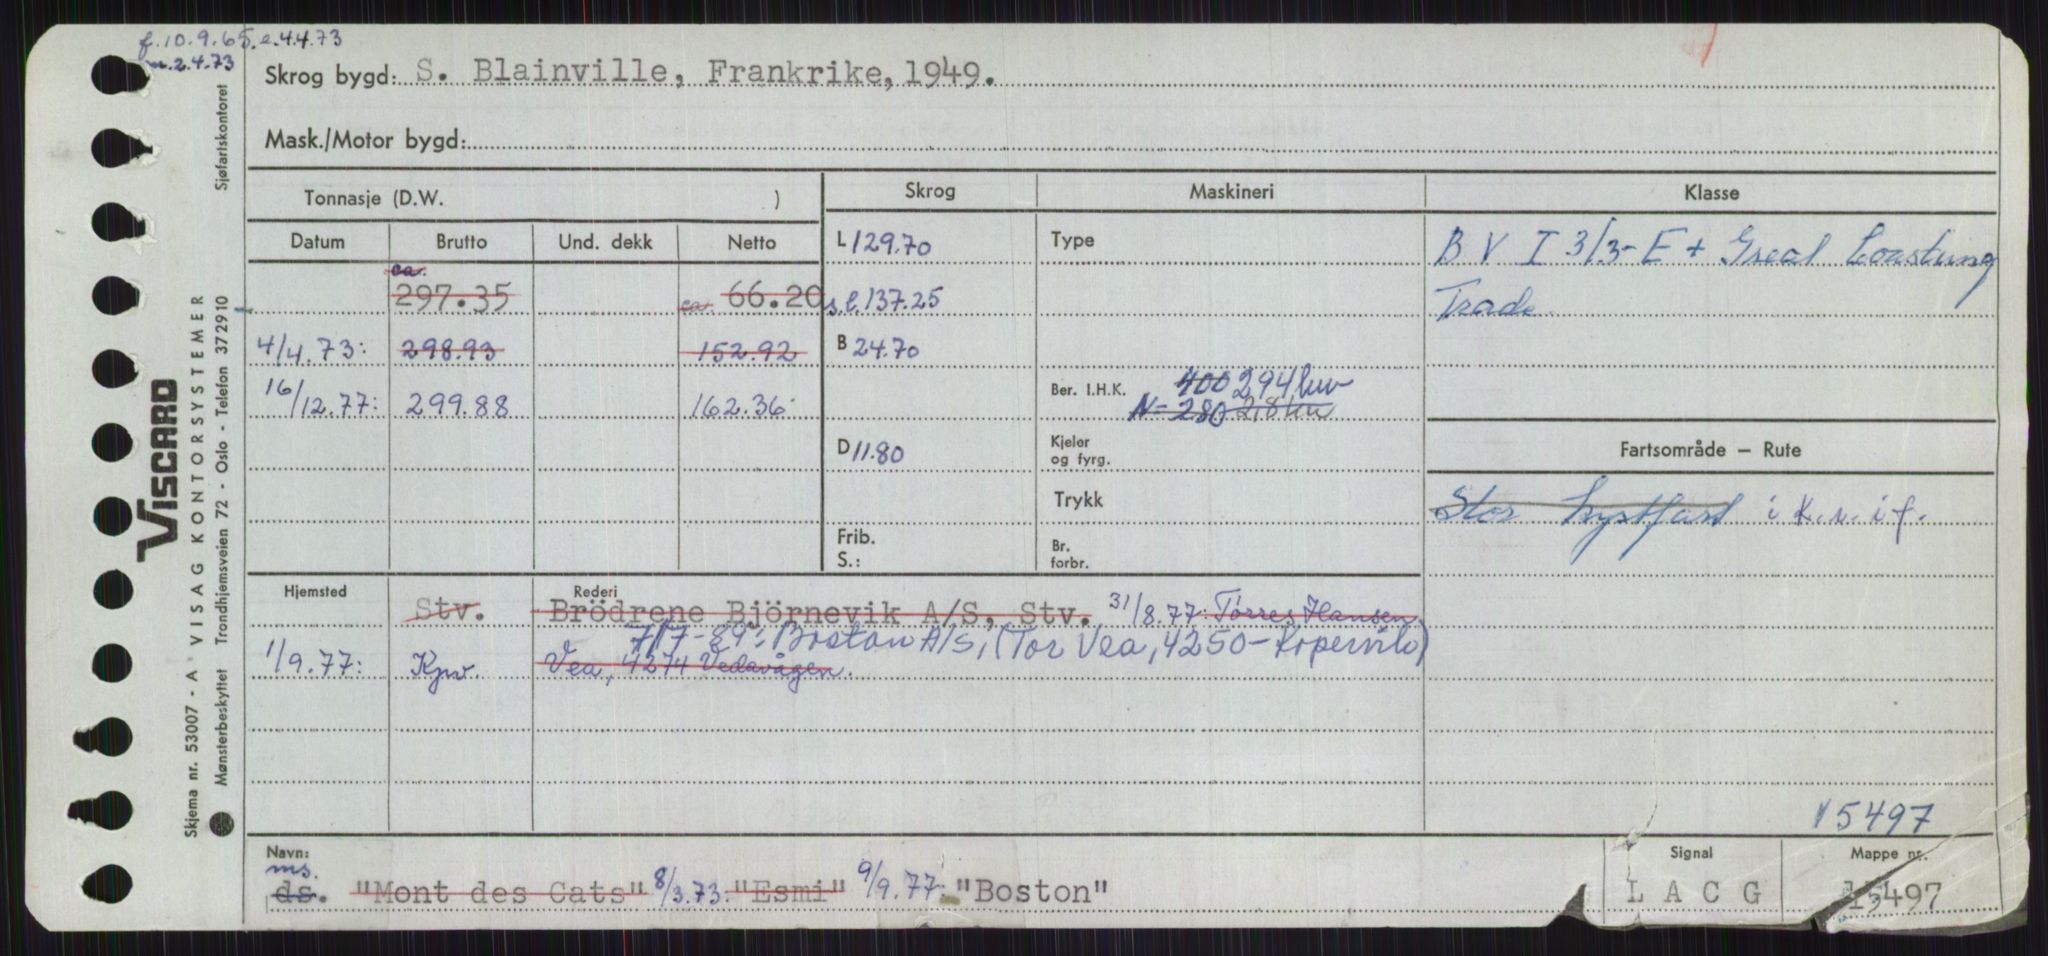 f. 10.9.65. e. 4.4.73
m. 2.4.73
Skrog bygd: S. Blainville, Frankrike, 1949.
Mask./Motor bygd:
Tonnasje (D.W. )
Skrog
Maskineri
Klasse
Datum Brutto Und. dekk Netto
L 129.70
Type
B V I 3/3-E + Great Coastung
ca. 297.35 ca. 66.20
s.l. 137.25
Trade
4/4.73: 298.93 152.92
B 24.70
16/12.77: 299.88 162.36
Ber. I.H.K. 400 294 kw
N= 280 2,8 kn
D 11.80
Kjeler og fyrg.
Fartsområde – Rute
Trykk
Stor kystfart i k.v. i f.
Frib.
S.:
Br. forbr.
Hjemsted Rederi
Stv. Brödrene Björnevik A/S, Stv. 31/8.77: Torres Hansen
7/7-89: Boston A/S, (Tor Vea, 4250-Kopervik)
1/9.77: Kpv. Vea, 4274 Vedavågen.
15497
Navn:
Signal
Mappe nr.
ms.
ds. "Mont des Cats" 8/3.73: "Esmi" 9/9.77: "Boston"
L A C G
15497
VISCARD
Skjema nr. 53007 - A VISAG KONTORSYSTEMER
Mønsterbeskyttet Trondhjemsveien 72 - Oslo - Telefon 372910 Sjøfartskontoret